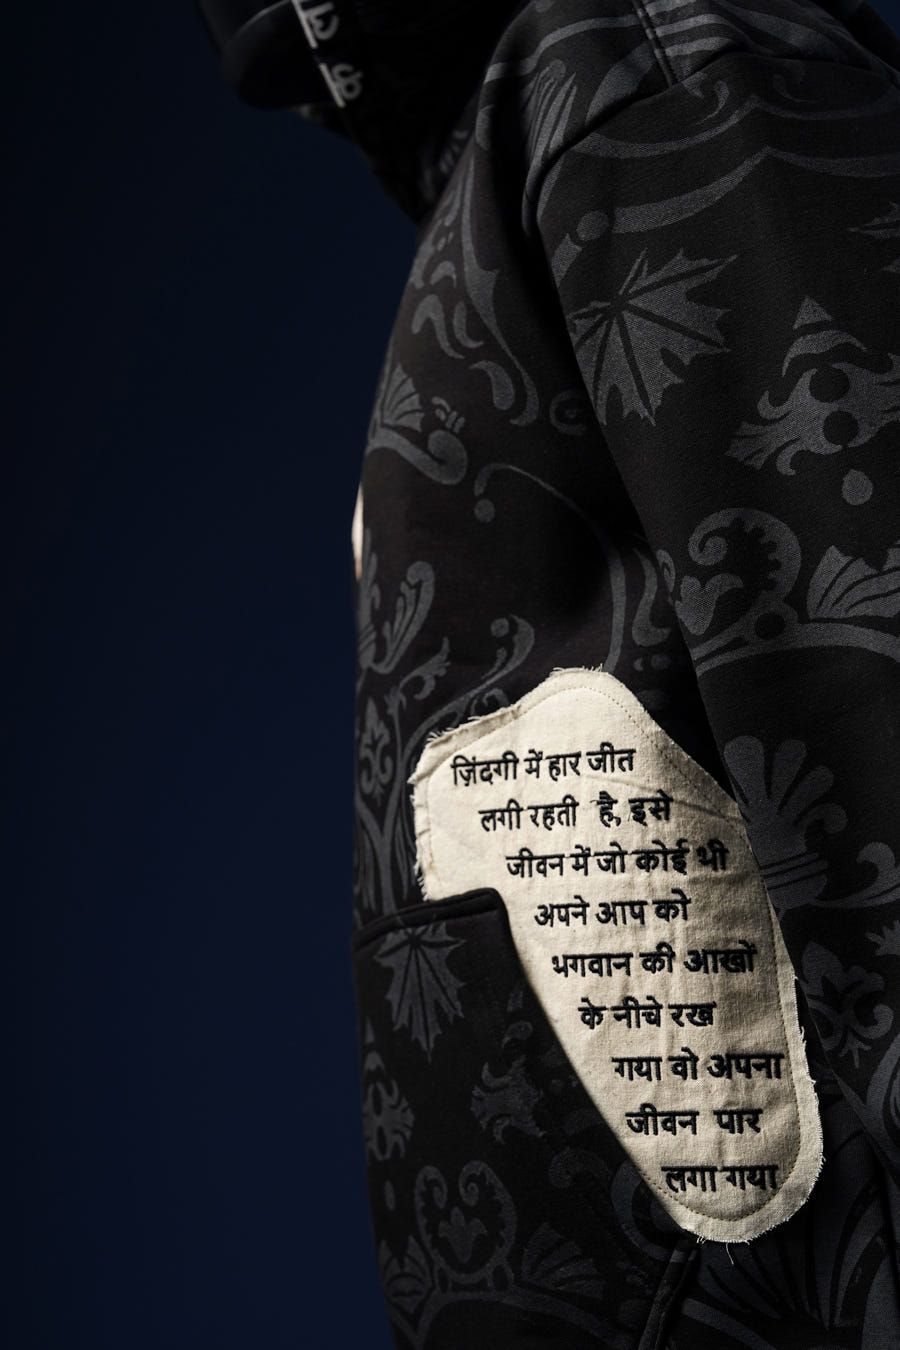 ज़िंदगी में हार जीत
लगी रहती है, इसे
जीवन में जो कोई भी
अपने आप को
भगवान की आखों
के नीचे रख
गया वो अपना
जीवन पार
लगा गया